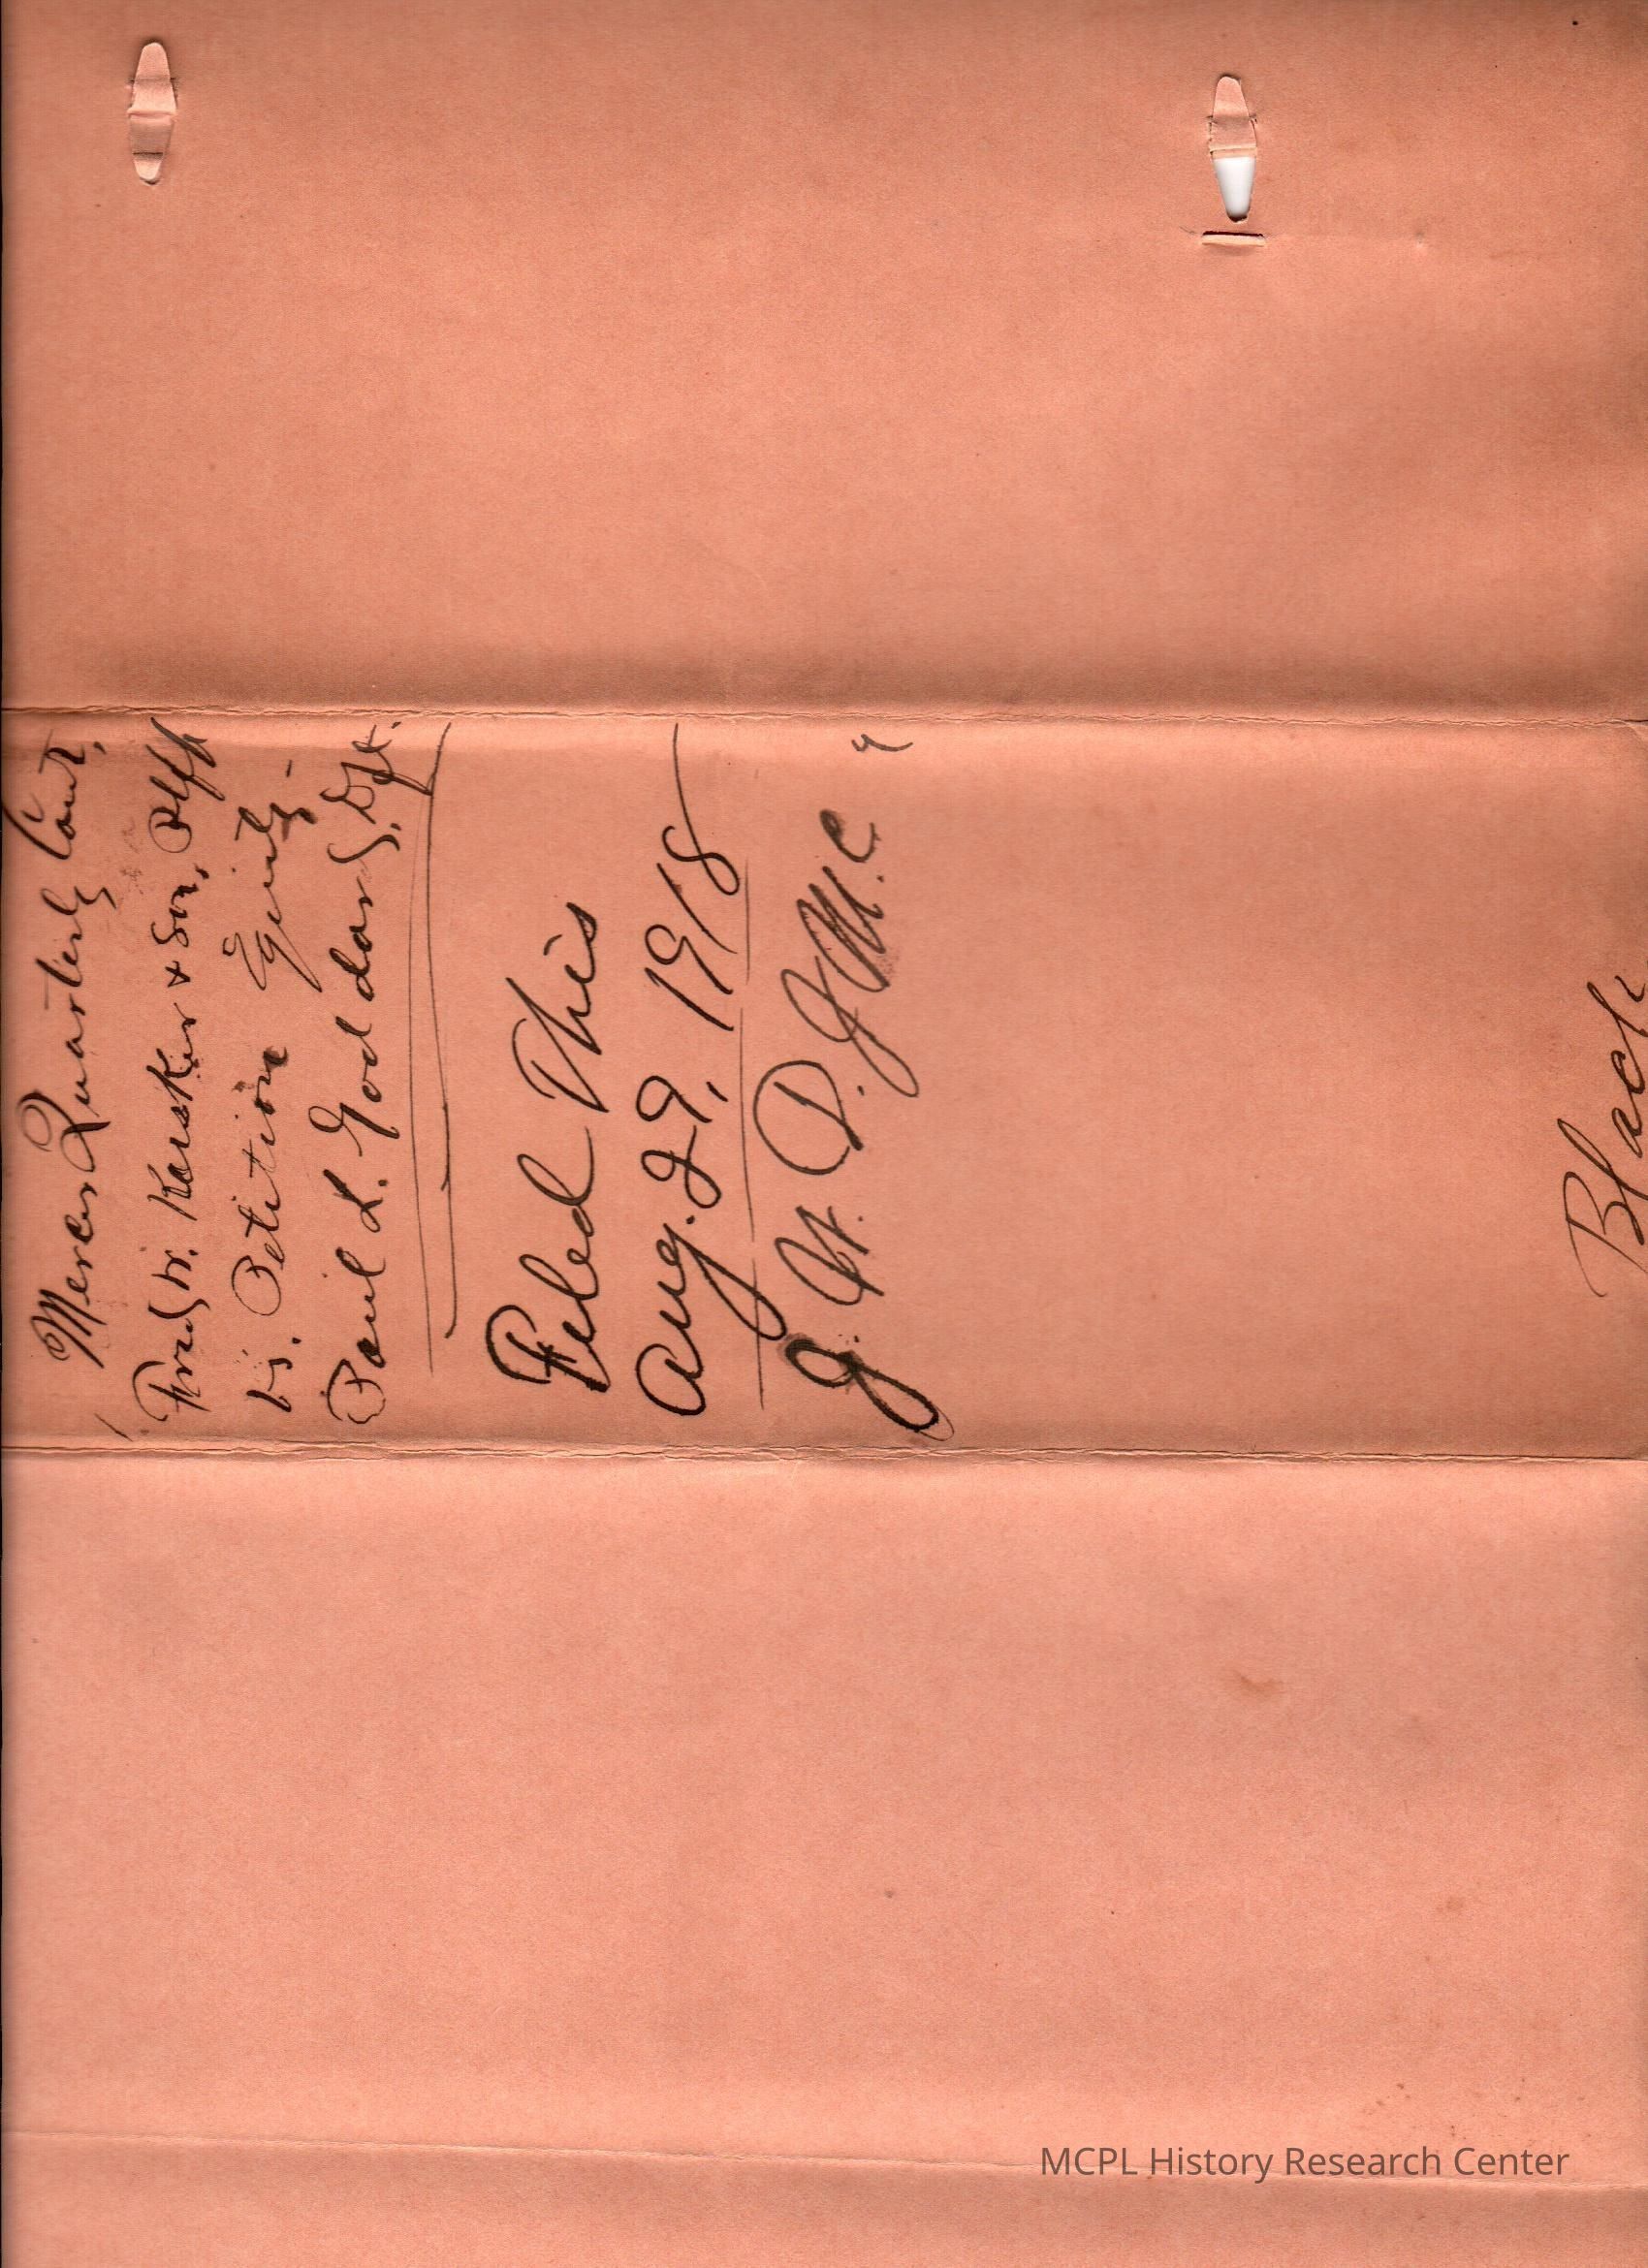 Mercer Quarterly Court,
Fred W. Karsker & Son, Plff
vs. Petition Equity -
Paul L. Goddard, Dft.
Filed This
Aug. 29, 1918
J. H. D. J M. C
Black
MCPL History Research Center